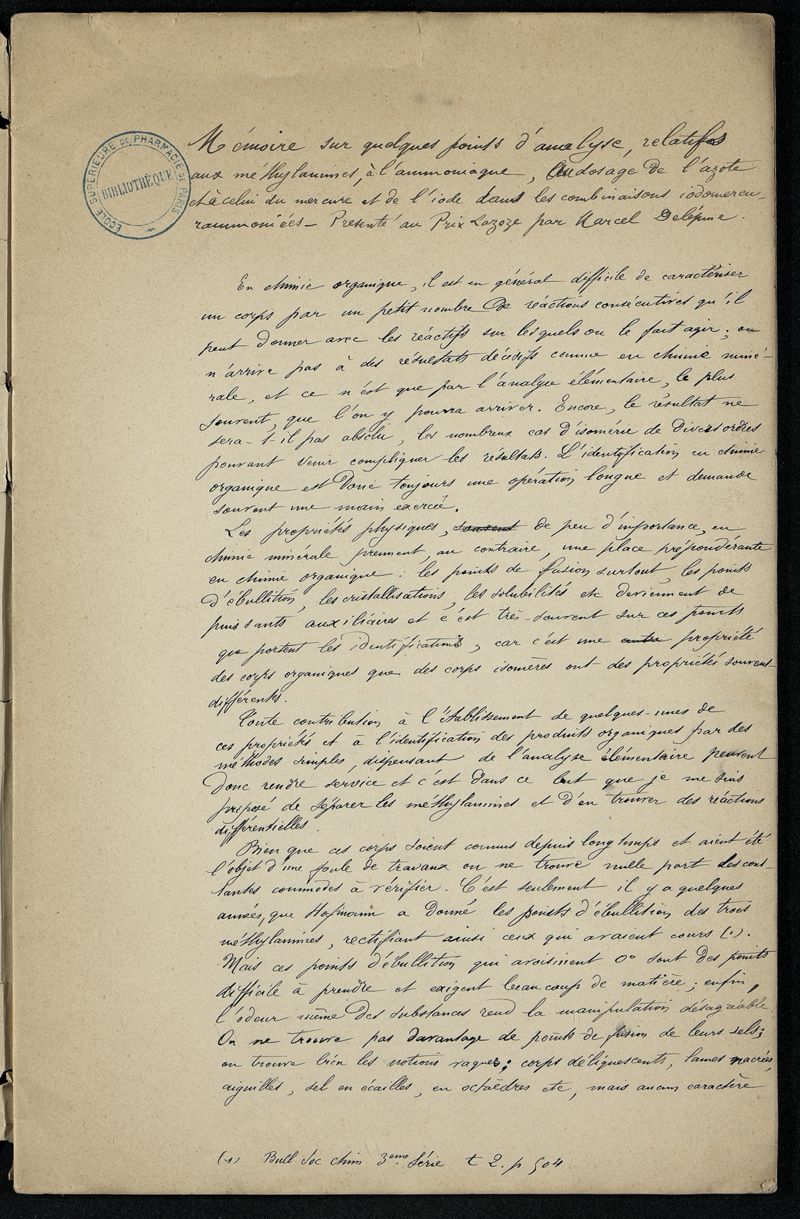 ÉCOLE SUPÉRIEURE DE PHARMACIE DE PARIS
BIBLIOTHÈQUE
Mémoire sur quelques points d'analyse, relatifs
aux méthylamines, à l'ammoniaque, au dosage de l'azote
et à celui du mercure et de l'iode dans les combinaisons iodomercu-
rammoniées — Présenté au Prix Lazoze par Marcel Delépine.
En chimie organique, il est en général difficile de caractériser
un corps par un petit nombre de réactions consécutives qu'il
peut donner avec les réactifs sur lesquels on le fait agir ; on
n'arrive pas à des résultats décisifs comme en chimie miné-
rale, et ce n'est que par l'analyse élémentaire, le plus
souvent, que l'on y pourra arriver. Encore, le résultat ne
sera-t-il pas absolu, les nombreux cas d'isomérie de divers ordres
pouvant venir compliquer les résultats. L'identification en chimie
organique est donc toujours une opération longue et demande
souvent une main exercée.
Les propriétés physiques, souvent de peu d'importance, en
chimie minérale prennent, au contraire, une place prépondérante
en chimie organique : les points de fusion surtout, les points
d'ébullition, les cristallisations, les solubilités etc deviennent de
puissants auxiliaires et c'est très-souvent sur ces points
que portent les identifications, car c'est une autre propriété
des corps organiques que des corps isomères ont des propriétés souvent
différentes.
Toute contribution à l'établissement de quelques-unes de
ces propriétés et à l'identification des produits organiques par des
méthodes simples, dispensant de l'analyse élémentaire peuvent
donc rendre service et c'est dans ce but que je me suis
proposé de séparer les méthylamines et d'en trouver des réactions
différentielles.
Bien que ces corps soient connus depuis longtemps et aient été
l'objet d'une foule de travaux on ne trouve nulle part des cons-
tantes commodes à vérifier. C'est seulement il y a quelques
années, que Hofmann a donné les points d'ébullition des trois
méthylamines, rectifiant ainsi ceux qui avaient cours (1).
Mais ces points d'ébullition qui avoisinent 0° sont des points
difficile à prendre et exigent beaucoup de matière ; enfin,
l'odeur même des substances rend la manipulation désagréable.
On ne trouve pas davantage de points de fusion de leurs sels ;
on trouve bien les notions vagues : corps déliquescents, lames nacrées,
aiguilles, sel en écailles, en octaèdres etc, mais aucun caractère
(1) Bull. Soc chim 3eme Série t 2. p 504.